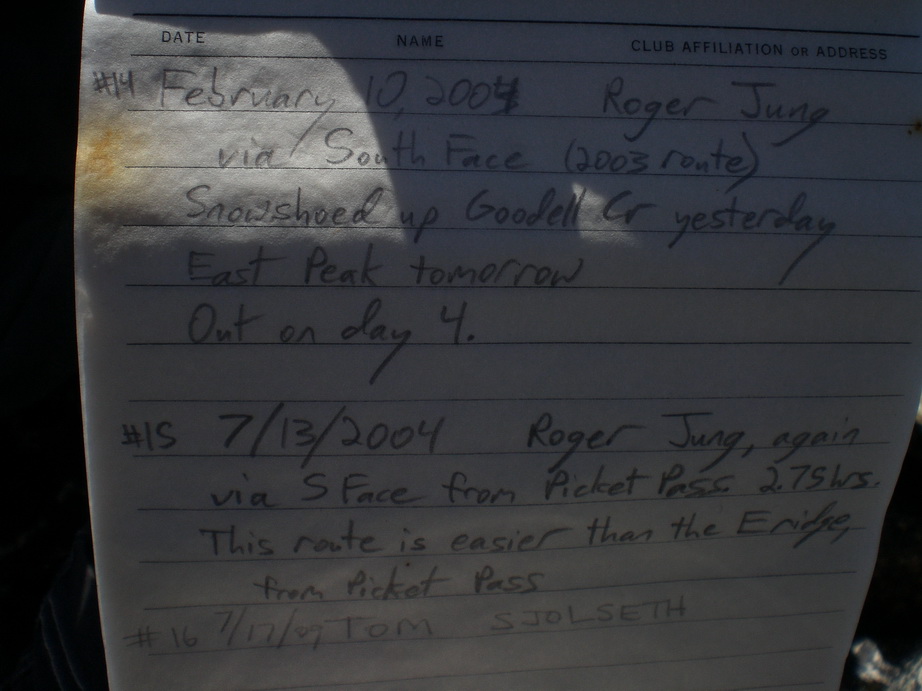 DATE NAME CLUB AFFILIATION OR ADDRESS
#14 February 10, 2004 Roger Jung
via South Face (2003 route)
Snowshoed up Goodell Cr yesterday
East Peak tomorrow
Out on day 4.
#15 7/13/2004 Roger Jung, again
via S Face from Picket Pass 2.75 hrs.
This route is easier than the E ridge,
from Picket Pass
#16 7/17/09 TOM SJOLSETH